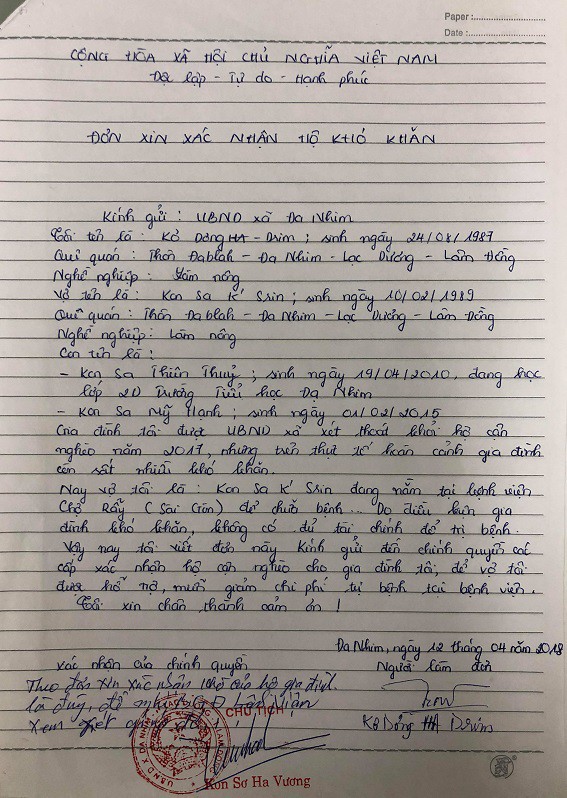 Paper :
Date :
CỘNG HÒA XÃ HỘI CHỦ NGHĨA VIỆT NAM
Độc lập - Tự do - Hạnh phúc
ĐƠN XIN XÁC NHẬN HỘ KHÓ KHĂN
Kính gửi : UBND xã Đa Nhim
Tôi tên là : Kơ Dơng HA - Drim ; sinh ngày 24/08/1987
Quê quán : Thôn Đablah - Đa Nhim - Lạc Dương - Lâm Đồng
Nghề nghiệp : Làm nông
Vợ tên là : Kon Sa K' Srin ; sinh ngày 10/02/1989
Quê quán : Thôn Đablah - Đa Nhim - Lạc Dương - Lâm Đồng
Nghề nghiệp : Làm nông
Con tên là :
- Kon Sa Thiên Thuỷ ; sinh ngày 19/04/2010, đang học
lớp 2D Trường Tiểu học Đạ Nhim
- Kon Sa Mỹ Hạnh ; sinh ngày 01/02/2015
Gia đình tôi được UBND xã xét thoát khỏi hộ cận
nghèo năm 2017, nhưng trên thực tế hoàn cảnh gia đình
còn rất nhiều khó khăn.
Nay vợ tôi là : Kon Sa K' Srin đang nằm tại bệnh viện
Chợ Rẫy ( Sài Gòn) để chữa bệnh .. Do điều kiện gia
đình khó khăn, không có đủ tài chính để trị bệnh.
Vậy nay tôi viết đơn này Kính gửi đến chính quyền các
cấp xác nhận hộ cận nghèo cho gia đình tôi, để vợ tôi
được hỗ trợ, miễn giảm chi phí trị bệnh tại bệnh viện.
Tôi xin chân thành cảm ơn !
Đa Nhim, ngày 12 tháng 04 năm 2018
Xác nhận của chính quyền
Người làm đơn
Theo đơn xin xác nhận của hộ gia đình
là đúng, đề nghị
Xem xét
CHỦ TỊCH
Kơ Dơng HA Drim
Kon Sơ Ha Vương